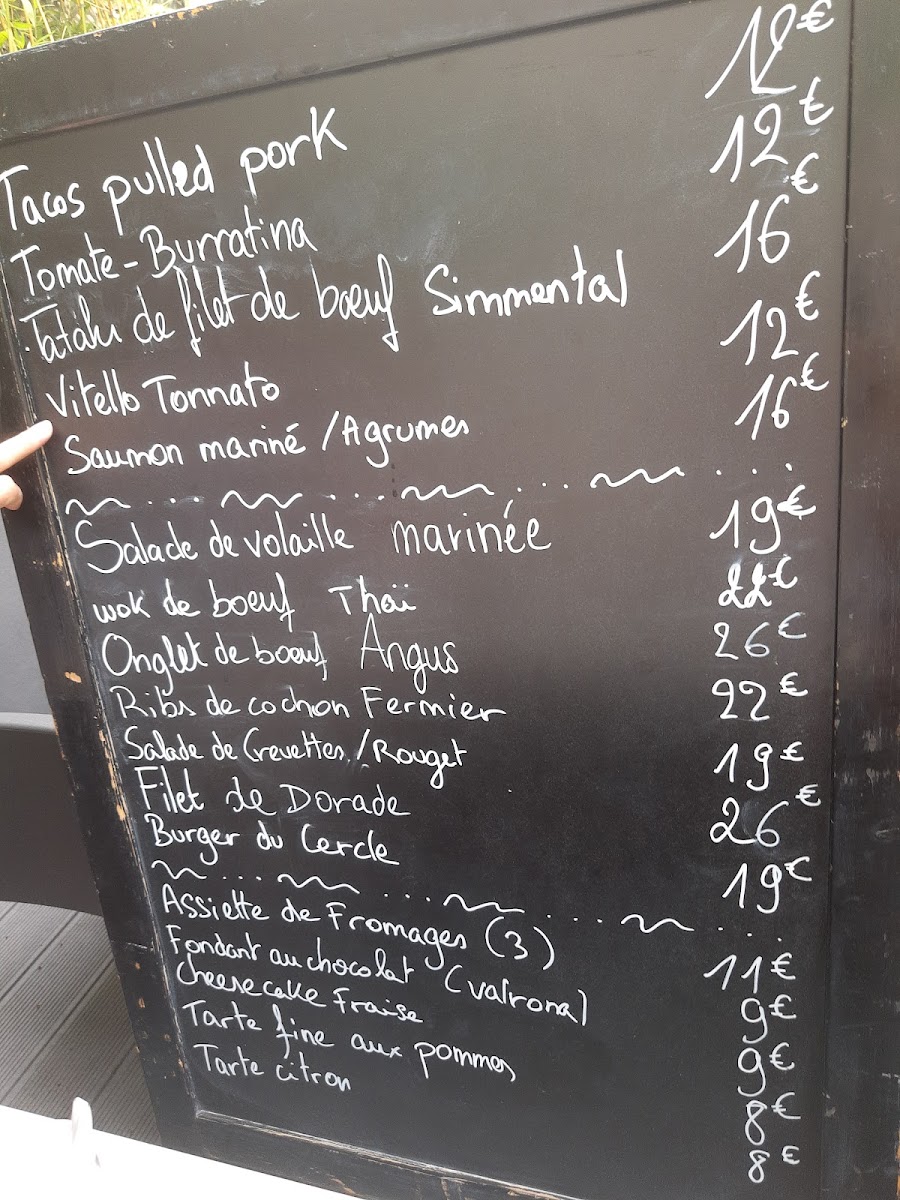 Tacos pulled pork 12€
Tomate-Burratina 12€
Tataki de filet de boeuf Simmental 16€
Vitello Tonnato 12€
Saumon mariné / Agrumes 16€
Salade de volaille marinée 19€
wok de boeuf Thaï 22€
Onglet de boeuf Angus 26€
Ribs de cochon Fermier 22€
Salade de Crevettes / Rouget 19€
Filet de Dorade 26€
Burger du Cercle 19€
Assiette de Fromages (3) 11€
Fondant au chocolat (valrona) 9€
Cheesecake Fraise 9€
Tarte fine aux pommes 8€
Tarte citron 8€